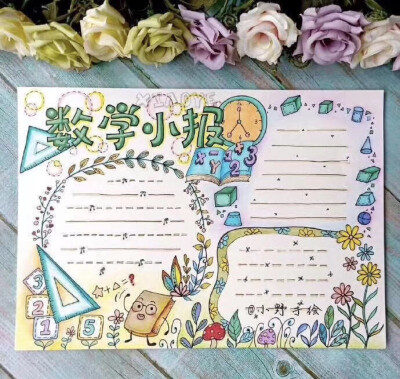 数学小报
☆+△=?
3
2
1 5
@小野手绘